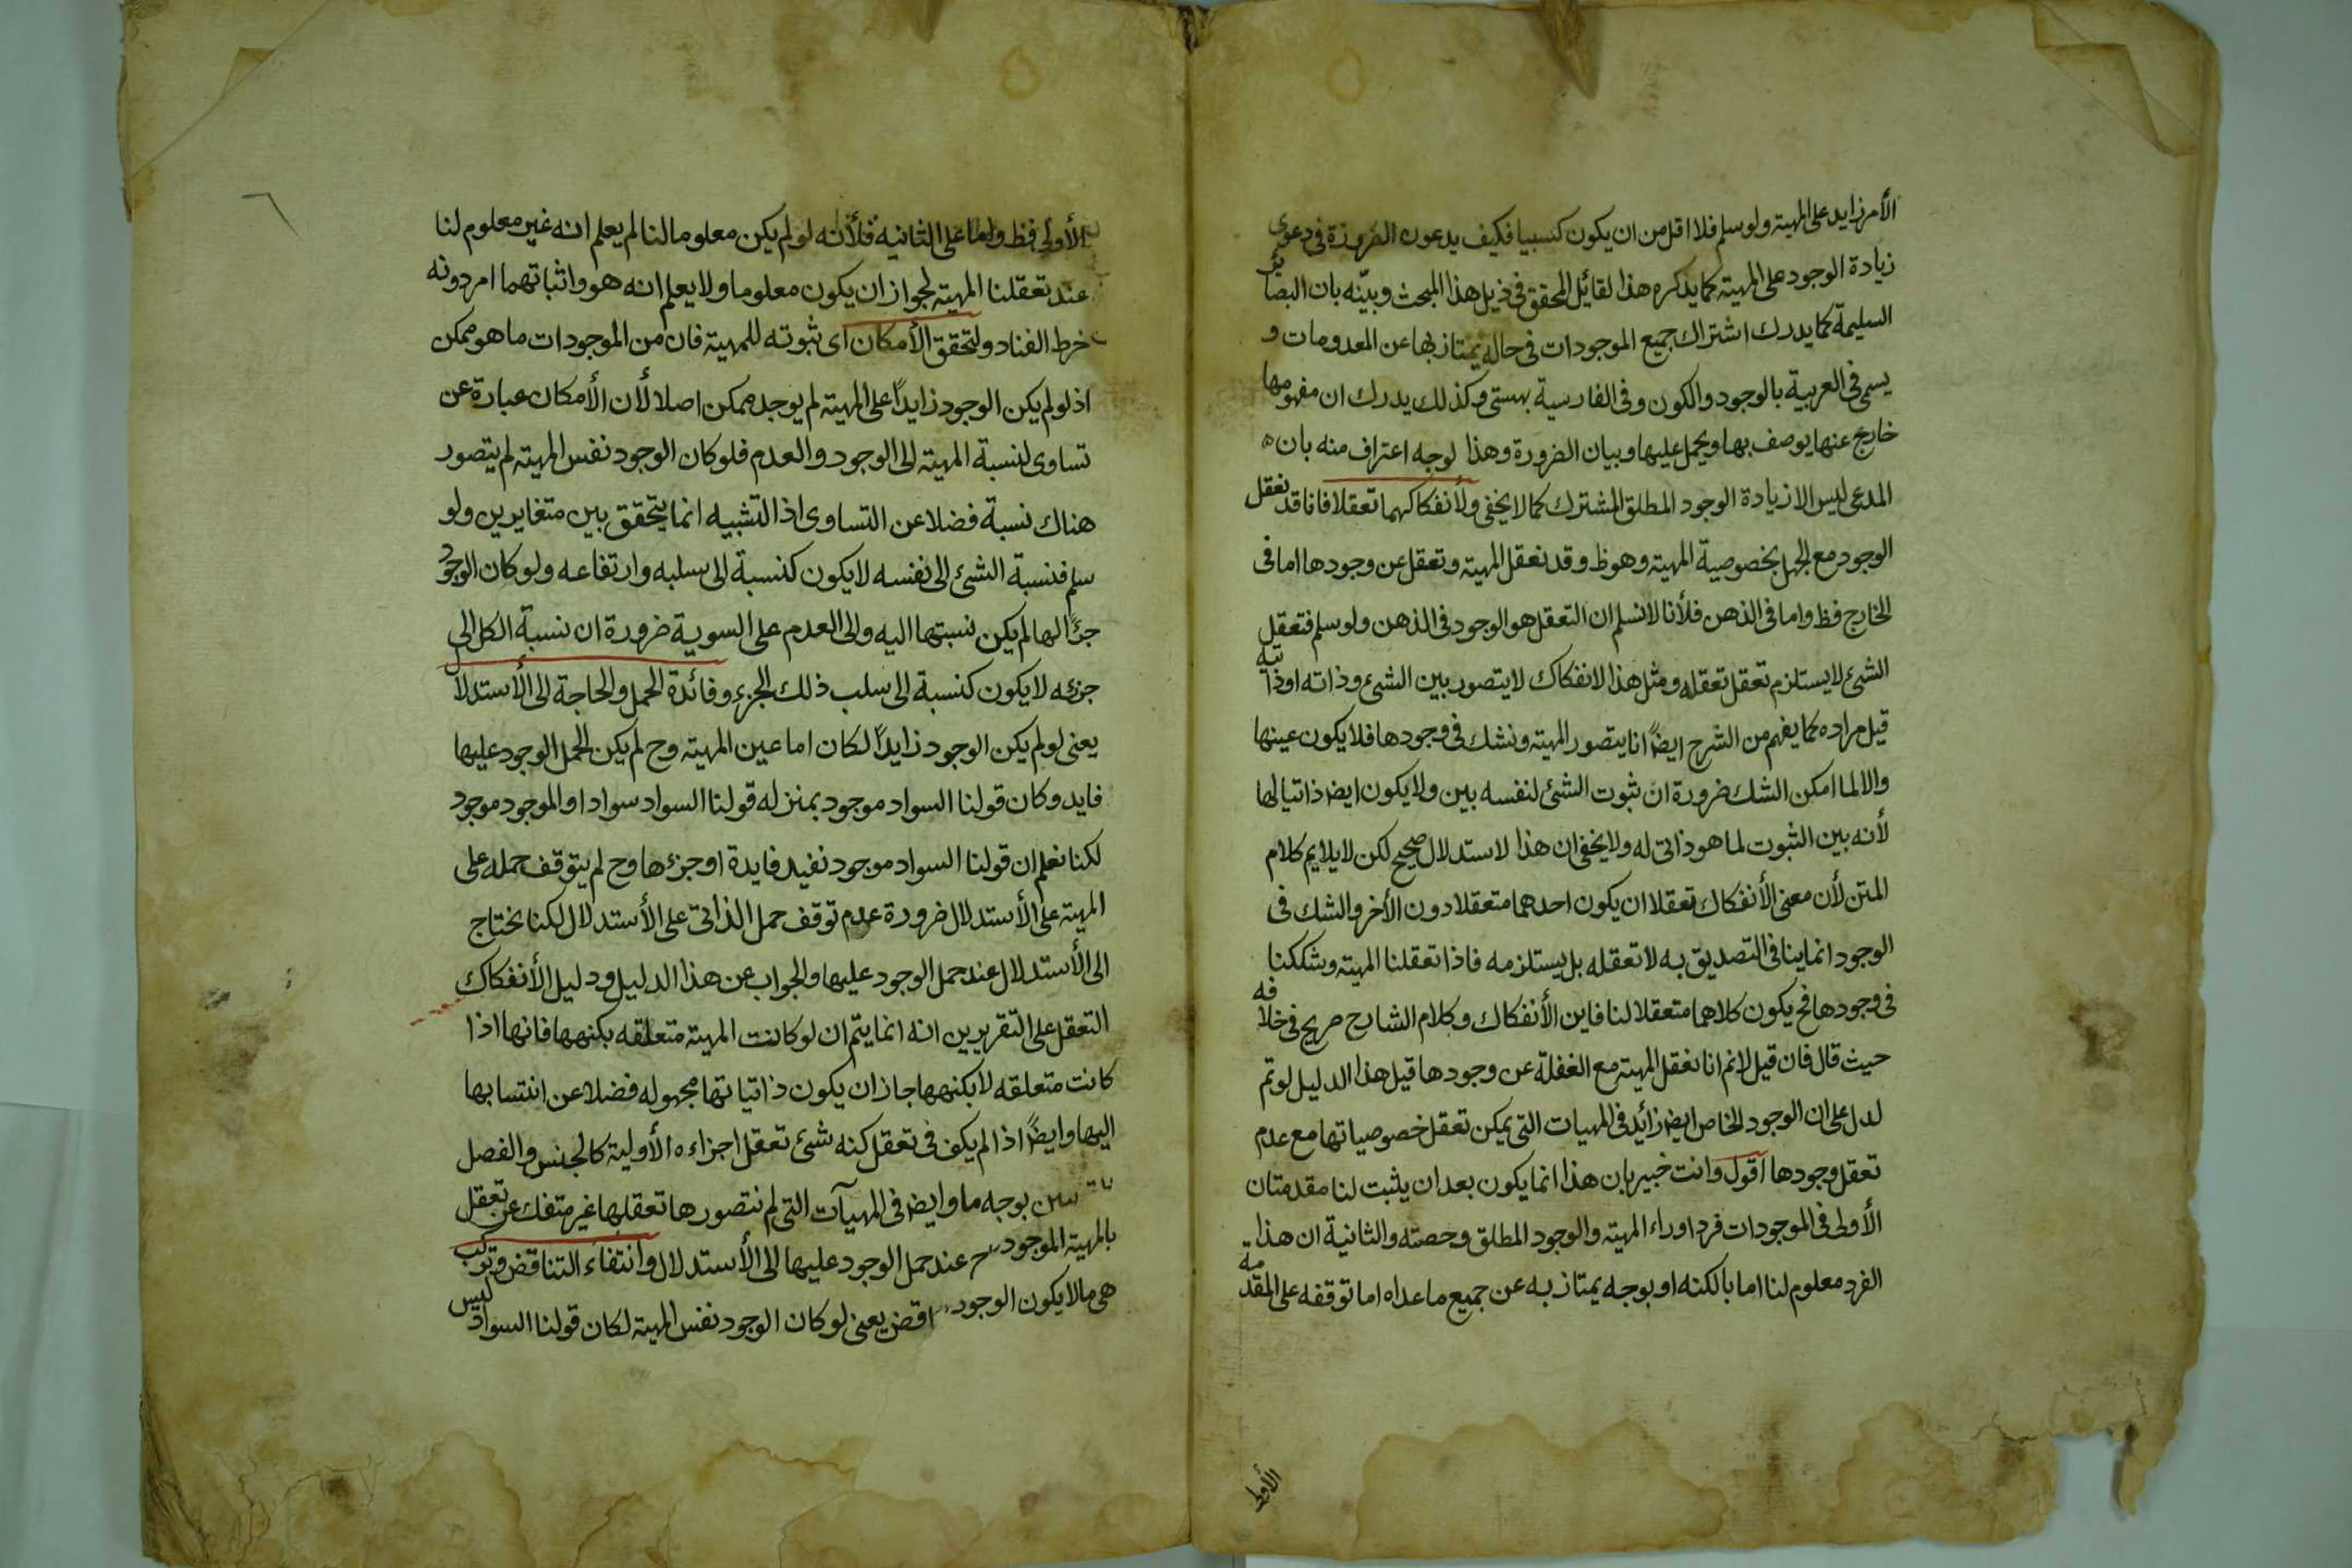 الأمر زايد على المهية ولو سلم فلا اقل من ان يكون كسبيا فكيف يدعون الضرورة فى دعوى
زيادة الوجود على المهية كما يذكره هذا لقائل المحقق فى ذيل هذا المبحث وبيّنه بان البصائر
السليمة كما يدرك اشتراك جميع الموجودات فى حالة يمتاز بها عن المعدومات و
يسمى فى العربية بالوجود والكون وفى الفارسية بهستى وكذلك يدرك ان مفهومها
خارج عنها يوصف بها ويحمل عليها وبيان الضرورة وهذا لوجه اعتراف منه بان
المدعى ليس الا زيادة الوجود المطلق المشترك كما لا يخفى ولأنفكاكهما تعقلا فانا قد نعقل
الوجود مع الجهل بخصوصية المهية وهو ظ وقد نعقل المهية وتعقل عن وجودها اما فى
الخارج فظ واما فى الذهن فلأنا لا نسلم ان التعقل هو الوجود فى الذهن ولو سلم فتعقل
الشئ لا يستلزم تعقل تعقله ومثل هذا الانفكاك لا يتصور بين الشئ وذاته او ذاتيه
قيل مراده كما يفهم من الشرح ايضًا انا يتصور المهية ونشك فى وجودها فلا يكون عينها
والا لما امكن الشك ضرورة ان ثبوت الشئ لنفسه بين ولا يكون ايض ذاتيا لها
لأنه بين الثبوت لما هو ذاتى له ولا يخفى ان هذا لاستدلال صحيح لكن لا يلايم كلام
المتن لأن معنى الأنفكاك تعقلا ان يكون احدهما متعقلا دون الأخر والشك فى
الوجود انما ينافى التصديق به لا تعقله بل يستلزمه فاذا تعقلنا المهية وشككنا
فى وجودها فح يكون كلاهما متعقلا لنا فاين الأنفكاك وكلام الشارح صريح فى خلافه
حيث قال فان قيل لا نم انا نعقل المهية مع الغفلة عن وجودها قيل هذا الدليل لو تم
لدل على ان الوجود الخاص ايض زائد فى المهيات التى يمكن تعقل خصوصياتها مع عدم
تعقل وجودها اقول وانت خبير بان هذا انما يكون بعد ان يثبت لنا مقدمتان
الأولى فى الموجودات فردا وراء المهية والوجود المطلق وحصته والثانية ان هذا
الفرد معلوم لنا اما بالكنه او بوجه يمتاز به عن جميع ما عداه اما توقفه على المقدمة
الأولى
الأولى فظ واما على الثانيه فلأنه لو لم يكن معلوما لنا لم يعلم انه غير معلوم لنا
عند تعقلنا المهية لجواز ان يكون معلوما ولا يعلم انه هو واثباتهما امر دونه
خرط القتاد ولتحقق الأمكان اى ثبوته للمهية فان من الموجودات ما هو ممكن
اذ لو لم يكن الوجود زايدًا على المهية لم يوجد ممكن اصلا لأن الأمكان عبارة عن
تساوى لنسبة المهية الى الوجود والعدم فلو كان الوجود نفس المهية لم يتصور
هناك نسبة فضلا عن التساوى اذ التشبيه انما يتحقق بين متغايرين ولو
سلم فنسبة الشئ الى نفسه لا يكون كنسبة الى سلبه وارتفاعه ولو كان الوجود
جزءًا لها لم يكن نسبتها اليه والى العدم على السوية ضرورة ان نسبة الكل الى
جزئه لا يكون كنسبة الى سلب ذلك الجزء وفائدة الحمل والحاجة الى الأستدلال
يعنى لو لم يكن الوجود زايدًا لكان اما عين المهية وح لم يكن لحمل الوجود عليها
فايد وكان قولنا السواد موجود بمنزله قولنا السواد سواد او الموجود موجود
لكنا نعلم ان قولنا السواد موجود نفيد فايدة او جزءها وح لم يتوقف حمله على
المهية على الأستدلال ضرورة عدم توقف حمل الذاتى على الأستدلال لكنا نحتاج
الى الأستدلال عند حمل الوجود عليها والجواب عن هذا الدليل ودليل الأنفكاك
التعقل على التقريرين انه انما يتم ان لو كانت المهية متعلقه بكنهها فانها اذا
كانت متعلقه لا بكنهها جاز ان يكون ذاتياتها مجهوله فضلا عن انتسابها
اليها وايضًا اذا لم يكف فى تعقل كنه شئ تعقل اجزاءه الأولية كالجنس والفصل
بوجه ما وايض فى المهيآت التى لم نتصورها تعقلها غير متفك عن تعقل
بالمهية الموجود عند حمل الوجود عليها الى الأستدلال وانتفاء التناقض وتركب
هى ما لا يكون الوجود يعنى لو كان الوجود نفس المهية لكان قولنا السواد ليس